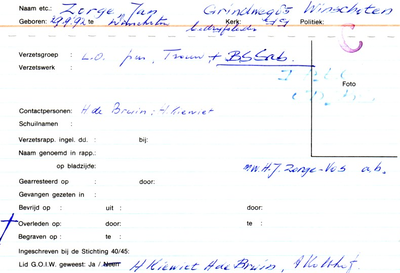 Naam etc.: Zorge Jan Grindweg 5 Winschoten
Geboren: 29.9.92 te Winschoten Kerk: Politiek:
bedrijfsleider
Verzetsgroep : L.O. pers, Trouw + BS Sab.
Verzetswerk :
Foto
Contactpersonen: H de Bruin; H Kiewiet
Schuilnamen :
Verzetsrapp. ingel. dd. : bij:
Naam genoemd in rapp.:
op bladzijde: mw. H.J. Zorge-Vos a.b.
Gearresteerd op : door:
Gevangen gezeten in :
Bevrijd op : uit : door:
Overleden op : door: te :
Begraven op : te :
Ingeschreven bij de Stichting 40/45:
Lid G.O.I.W. geweest: Ja / Neen H Kiewiet H de Bruin, A Kolthof